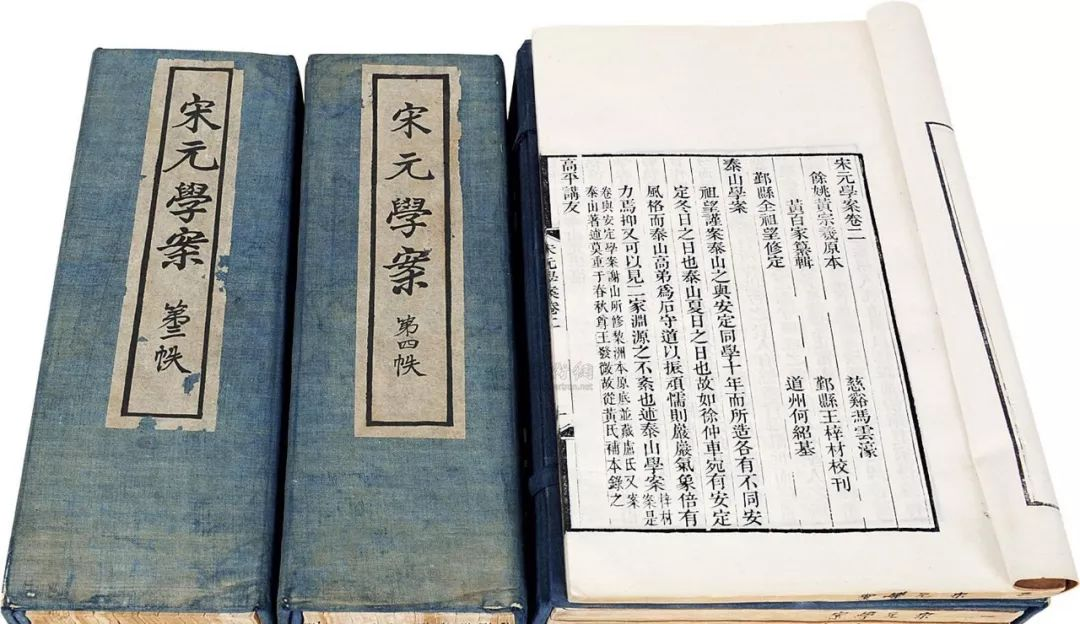 宋元學案
第三帙
宋元學案
第四帙
宋元學案卷二
餘姚黃宗羲原本 慈谿馮雲濠
黃百家纂輯 鄞縣王梓材校刊
鄞縣全祖望修定 道州何紹基
泰山學案
祖望謹案泰山之與安定同學十年而所造各有不同安
定冬日之日也泰山夏日之日也故如徐仲車宛有安定
風格而泰山高弟爲石守道以振頑懦則巖巖氣象倍有
力焉抑又可以見二家淵源之不紊也述泰山學案 梓材案是
卷與安定學案謝山所修梨洲本原底並藏盧氏又案
泰山著述莫重于春秋尊王發微故從黃氏補本錄之
高平講友
宋元學案卷二